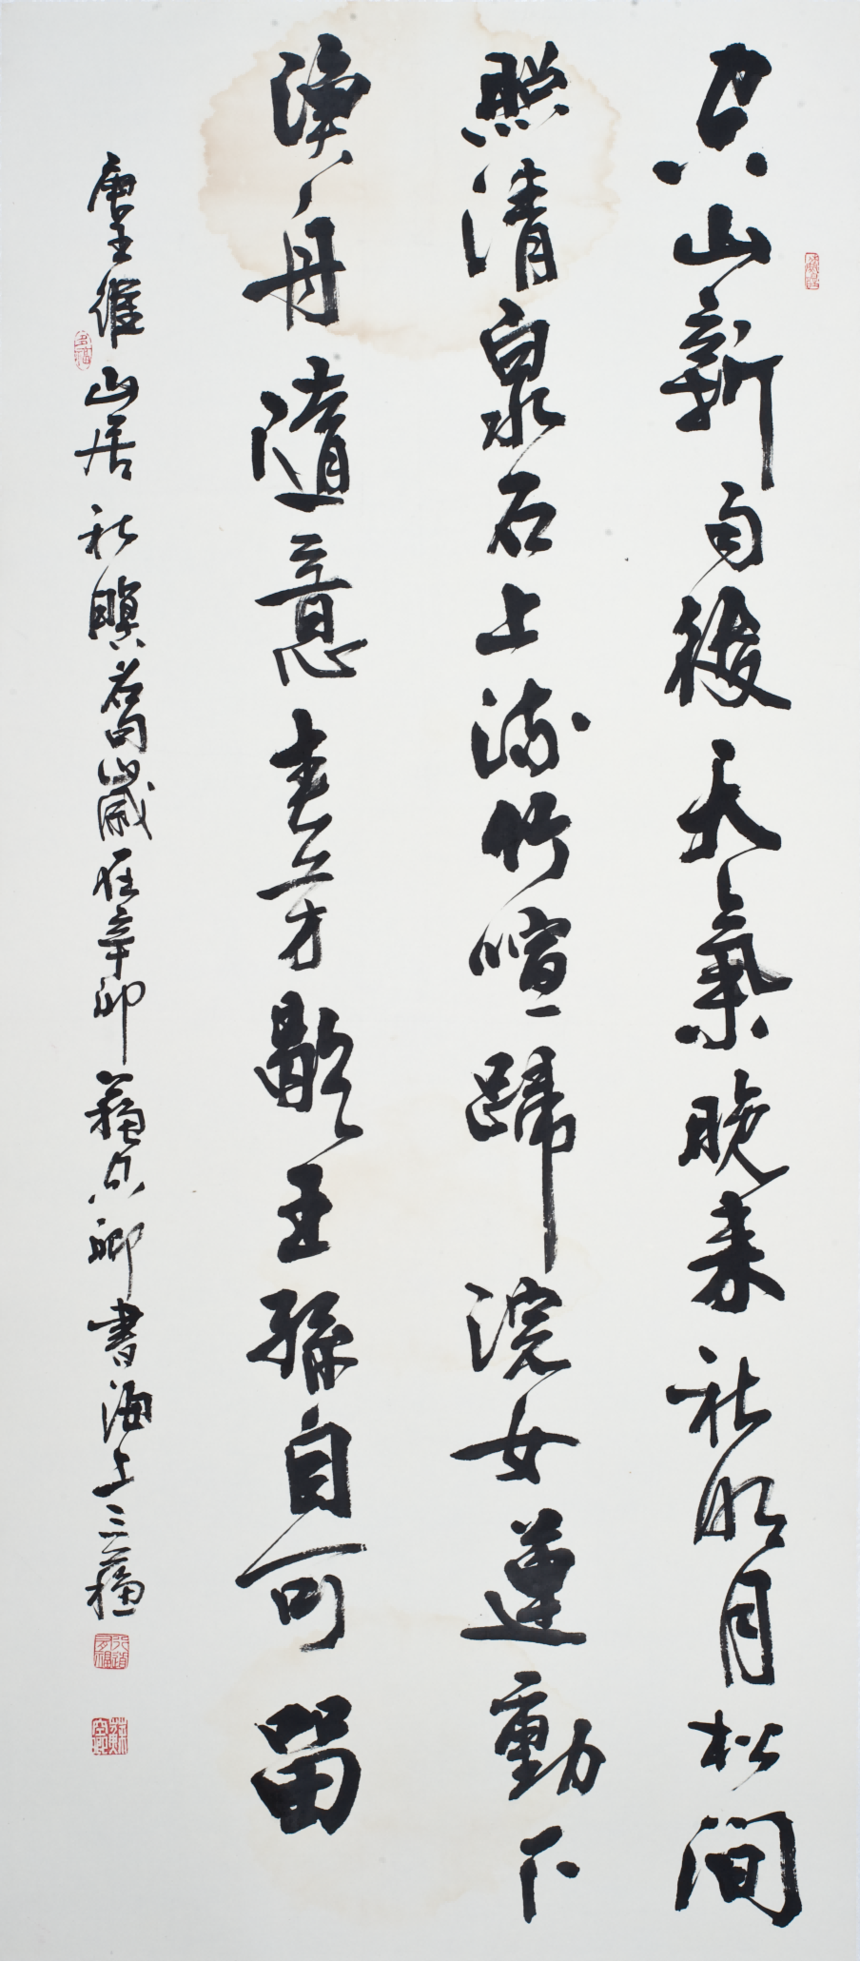 空山新雨後天氣晚來秋明月松間
照清泉石上流竹喧歸浣女蓮動下
漁舟隨意春芳歇王孫自可留
唐王維山居秋暝歲在辛卯蘓空卿書海上三蘓